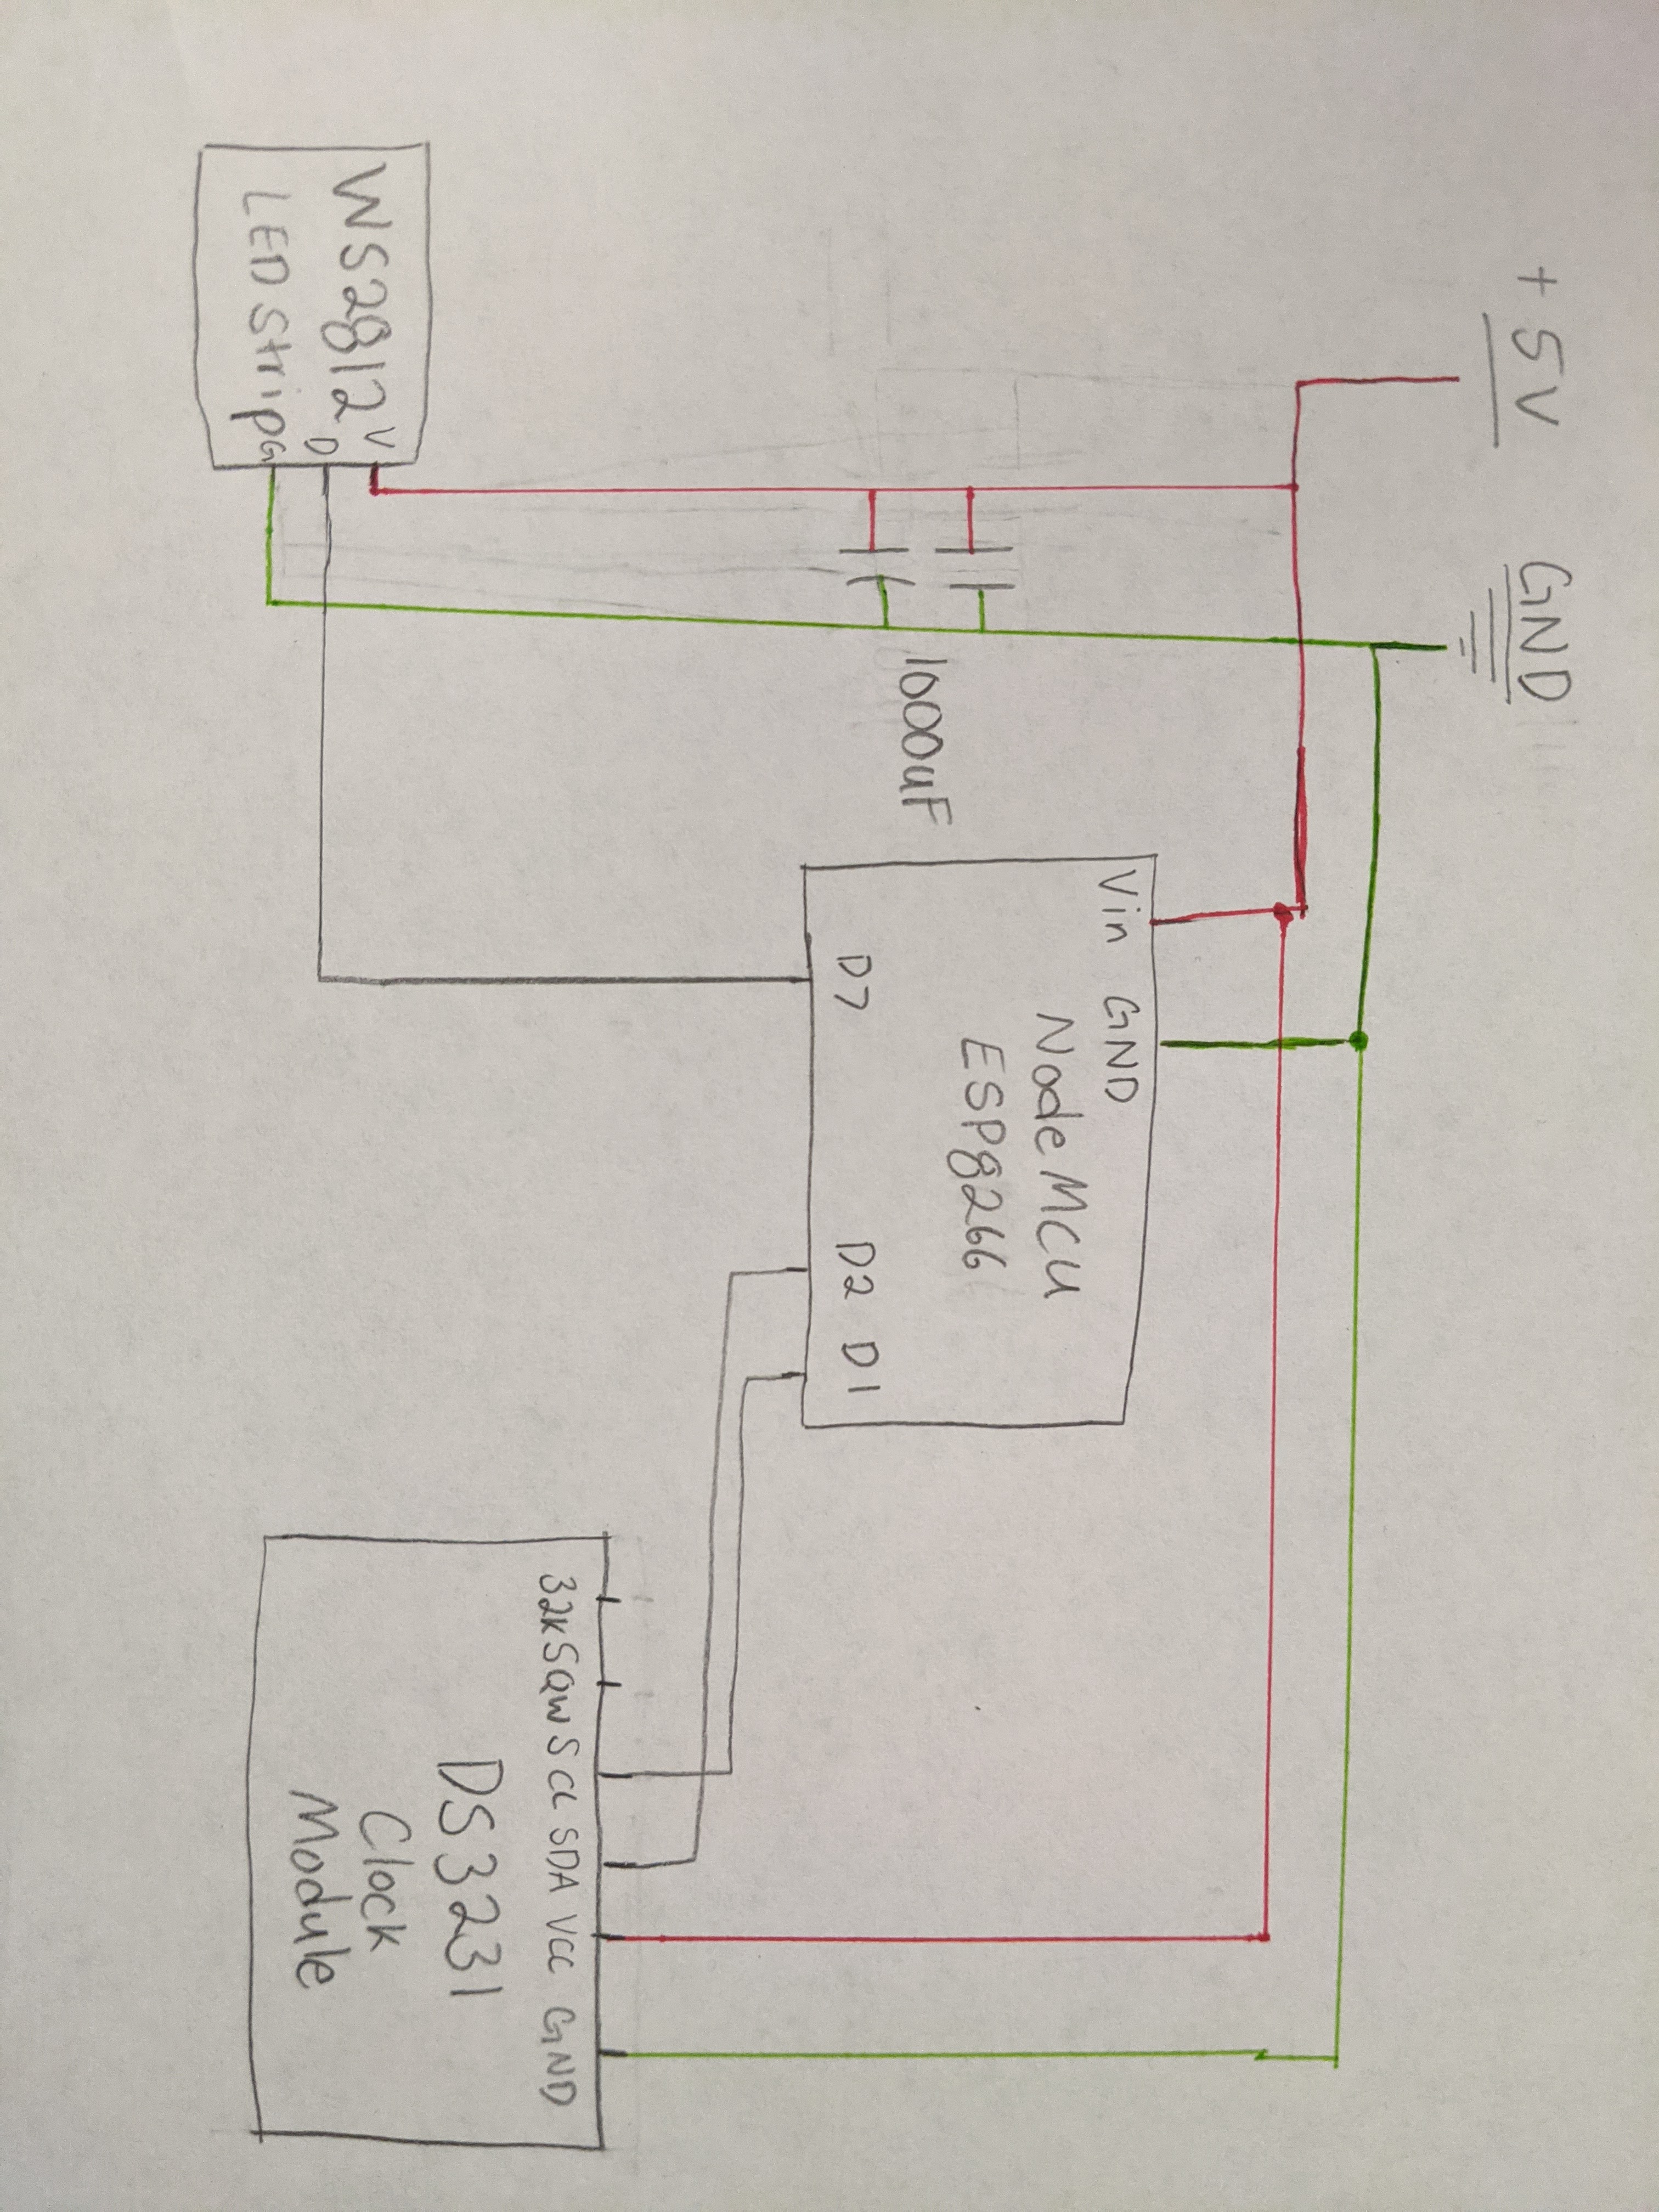 + 5V
GND
Vin GND
NodeMCU
ESP8266
1000uF
D7 D2 D1
32K SQW SCL SDA VCC GND
DS3231
Clock
Module
WS2812 V
D
LED Strip G